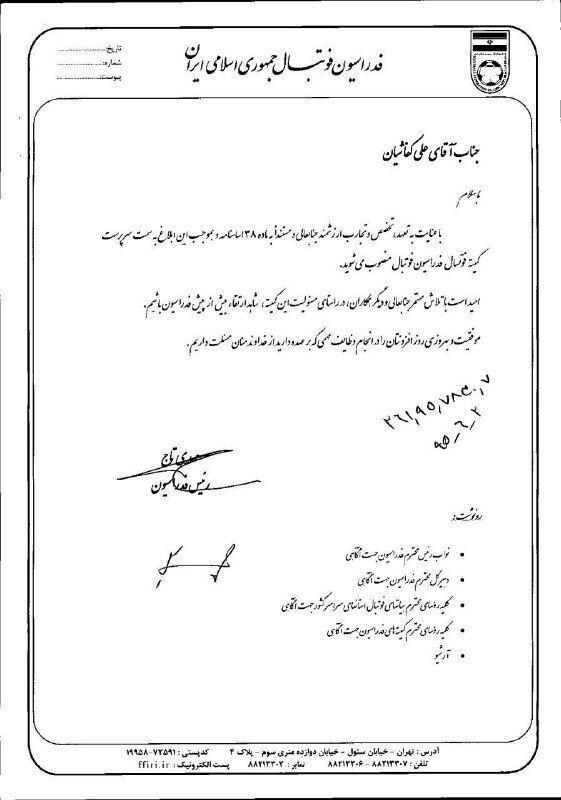 فدراسیون فوتبال جمهوری اسلامی ایران
تاریخ:
شماره:
پیوست:
جناب آقای علی کفاشیان
با سلام
با عنایت به تعهد، تخصص و تجارب ارزشمند جنابعالی و مستنداً به ماده ۳۸ اساسنامه و بموجب این ابلاغ به سمت سرپرست
کمیته فوتسال فدراسیون فوتبال منصوب می شوید.
امید است با تلاش مستمر جنابعالی و دیگر همکاران، در راستای مسئولیت این کمیته، شاهد ارتقاء بیش از پیش فدراسیون باشیم.
موفقیت و بهروزی روز افزونتان را در انجام وظایف مهمی که بر عهده دارید از خداوند منان مسئلت داریم.
۹۵_۶_۲
مهدی تاج
رئیس فدراسیون
رونوشت:
• نواب رئیس محترم فدراسیون جهت آگاهی
• دبیرکل محترم فدراسیون جهت آگاهی
• کلیه روسای محترم هیاتهای فوتبال استانهای سراسر کشور جهت آگاهی
• کلیه روسای محترم کمیته های فدراسیون جهت آگاهی
• آرشیو
آدرس : تهران - خیابان سئول - خیابان دوازده متری سوم - پلاک ۴ کدپستی : ۷۳۵۹۱-۱۹۹۵۸
تلفن : ۸۸۲۱۳۳۰۷ - ۸۸۲۱۳۳۰۶ نمابر : ۸۸۲۱۳۳۰۲ پست الکترونیک : ffiri.ir